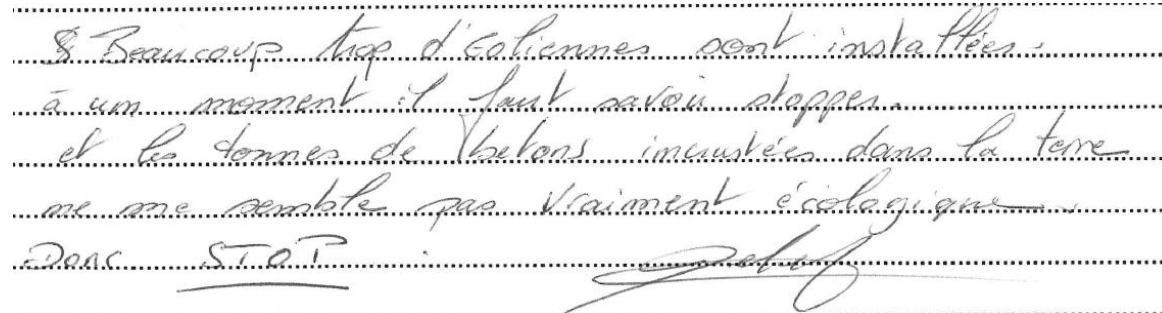 Beaucoup trop d'Eoliennes sont installées.
à un moment il faut savoir stopper.
et les tonnes de betons incrustées dans la terre
ne me semble pas vraiment écologique.
Donc STOP.